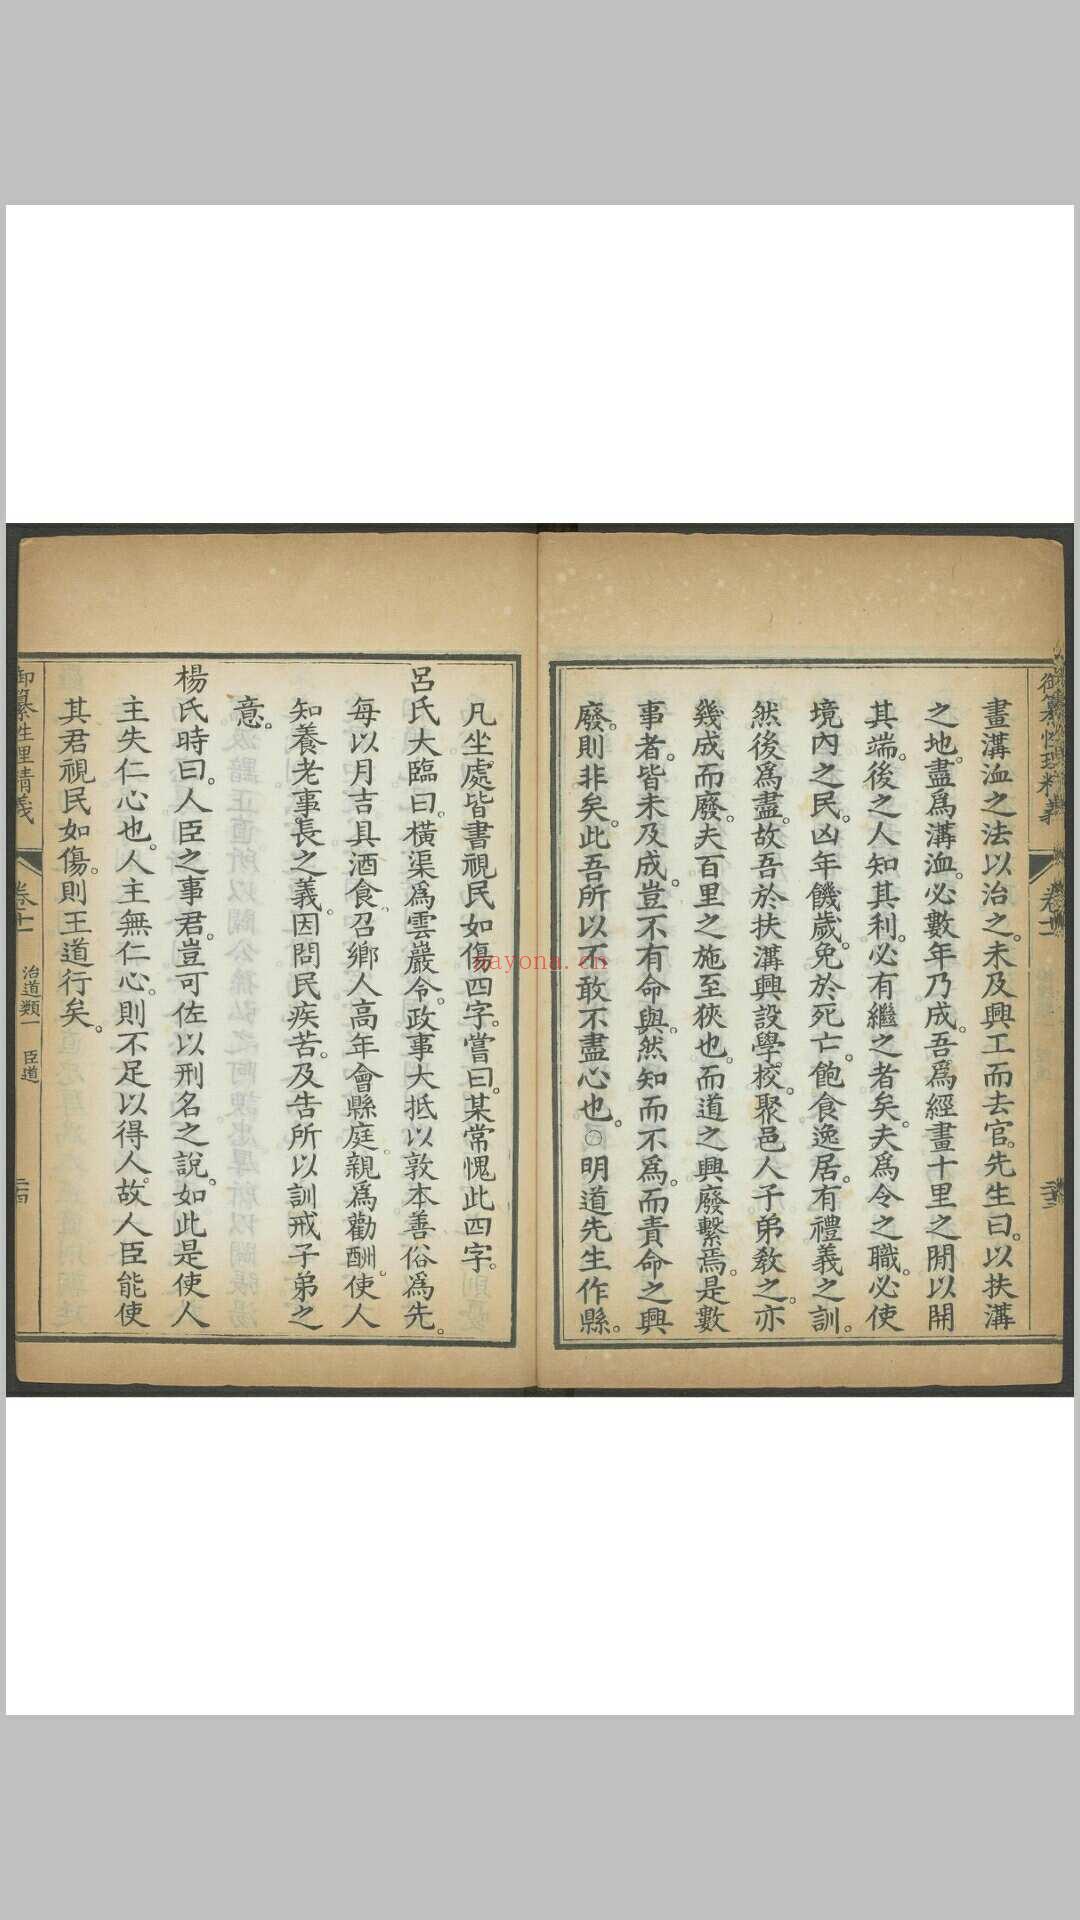 畫溝洫之法以治之。未及興工而去官。先生曰。以扶溝
之地。盡爲溝洫。必數年乃成。吾爲經畫十里之閒以開
其端。後之人知其利。必有繼之者矣。夫爲令之職。必使
境內之民。凶年饑歲。免於死亡。飽食逸居。有禮義之訓。
然後爲盡。故吾於扶溝興設學校。聚邑人子弟教之。亦
幾成而廢。夫百里之施至狹也。而道之興廢繫焉。是數
事者。皆未及成。豈不有命與。然知而不爲。而責命之興
廢。則非矣。此吾所以不敢不盡心也。○明道先生作縣。
凡坐處皆書視民如傷四字。嘗曰。某常愧此四字。
呂氏大臨曰。橫渠爲雲巖令。政事大抵以敦本善俗爲先。
每以月吉具酒食。召鄉人高年會縣庭。親爲勸酬。使人
知養老事長之義。因問民疾苦。及告所以訓戒子弟之
意。
楊氏時曰。人臣之事君。豈可佐以刑名之說。如此是使人
主失仁心也。人主無仁心。則不足以得人。故人臣能使
其君視民如傷。則王道行矣。
御纂性理精義
卷十一
治道類一
臣道
二十四
nayona.cn